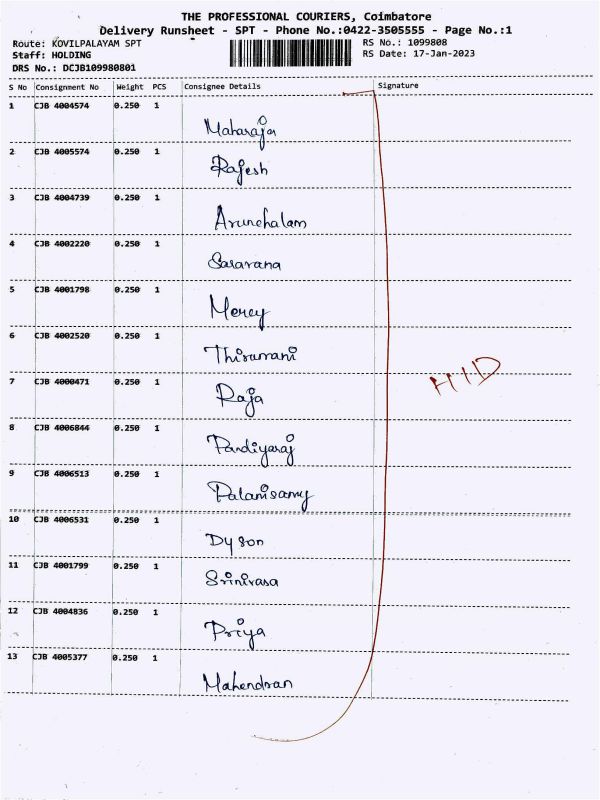 THE PROFESSIONAL COURIERS, Coimbatore
Delivery Runsheet - SPT - Phone No.:0422-3505555 - Page No.:1
Route: KOVILPALAYAM SPT RS No.: 1099808
Staff: HOLDING RS Date: 17-Jan-2023
DRS No.: DCJB109980801
S No Consignment No Weight PCS Consignee Details Signature
1 CJB 4004574 0.250 1 Maharaja
2 CJB 4005574 0.250 1 Rajesh
3 CJB 4004739 0.250 1 Arunchalam
4 CJB 4002220 0.250 1 Saravana
5 CJB 4001798 0.250 1 Mercy
6 CJB 4002520 0.250 1 Thirumani
7 CJB 4000471 0.250 1 Raja
8 CJB 4006844 0.250 1 Pandiyaraj
9 CJB 4006513 0.250 1 Palanisamy
10 CJB 4006531 0.250 1 Dyson
11 CJB 4001799 0.250 1 Srinivasa
12 CJB 4004836 0.250 1 Priya
13 CJB 4005377 0.250 1 Mahendran
H/D